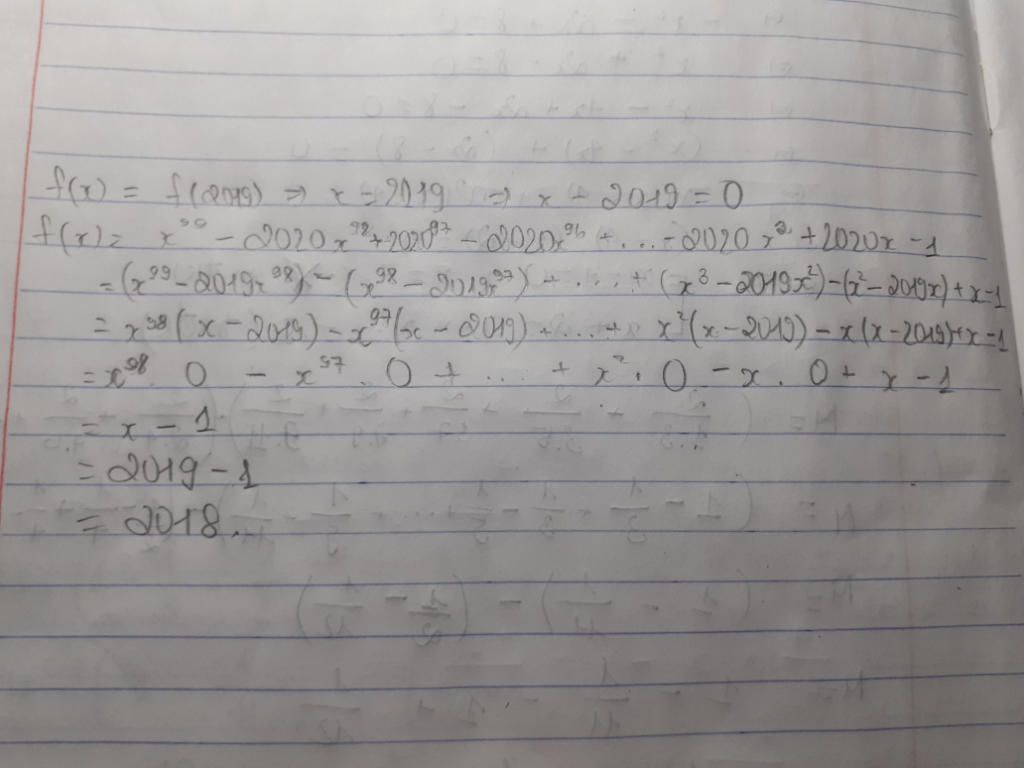 f(x) = f(2019) ⇒ x = 2019 ⇒ x - 2019 = 0
f(x) = x⁹⁹ - 2020x⁹⁸ + 2020⁹⁷ - 2020x⁹⁶ + ... - 2020x² + 2020x - 1
= (x⁹⁹ - 2019x⁹⁸) - (x⁹⁸ - 2019x⁹⁷) + ... + (x³ - 2019x²) - (x² - 2019x) + x - 1
= x⁹⁸(x - 2019) - x⁹⁷(x - 2019) + ... + x²(x - 2019) - x(x - 2019) + x - 1
= x⁹⁸. 0 - x⁹⁷. 0 + ... + x². 0 - x. 0 + x - 1
= x - 1
= 2019 - 1
= 2018.